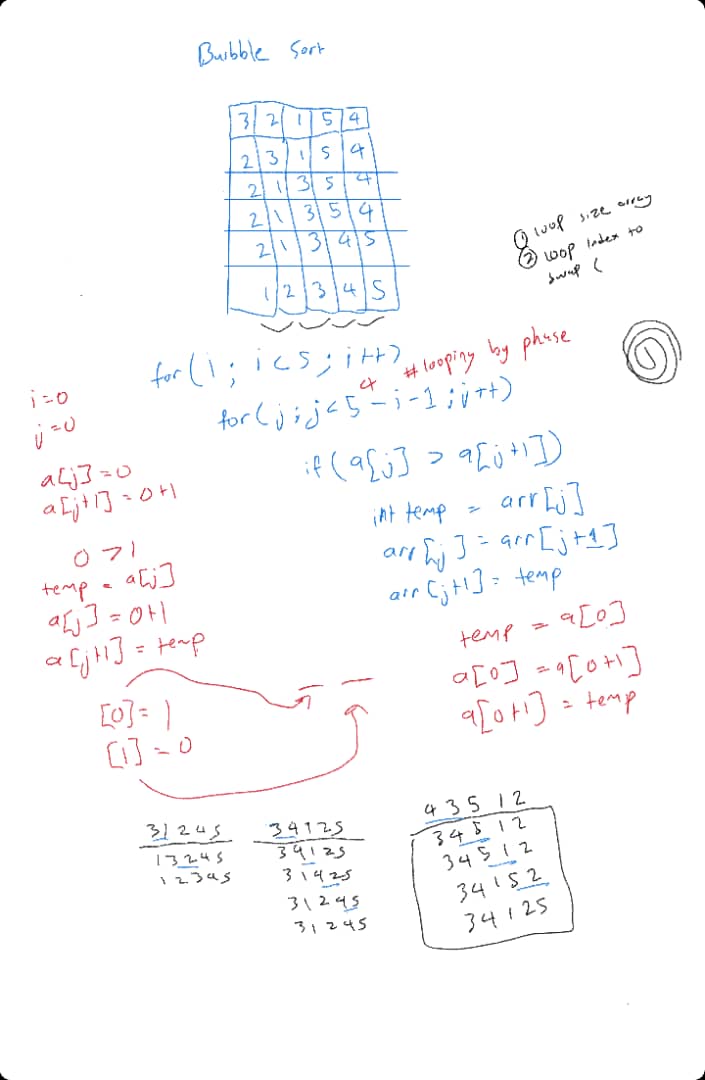 Bubble Sort
3 2 1 5 4
2 3 1 5 4
2 1 3 5 4
2 1 3 5 4
2 1 3 4 5
1 2 3 4 5
① loop size array
② loop index to
swap (
for(i; i<5; i++)
4 #looping by phase
for(j; j<5-i-1; j++)
if(a[j] > a[j+1])
int temp = arr[j]
arr[j] = arr[j+1]
arr[j+1] = temp
i=0
j=0
a[j]=0
a[j+1]=0+1
0>1
temp = a[j]
a[j]=0+1
a[j+1]=temp
[0]=1
[1]=0
temp = a[0]
a[0] = a[0+1]
a[0+1] = temp
31245
13245
12345
34125
34125
31425
31245
31245
43512
34512
34512
34152
34125